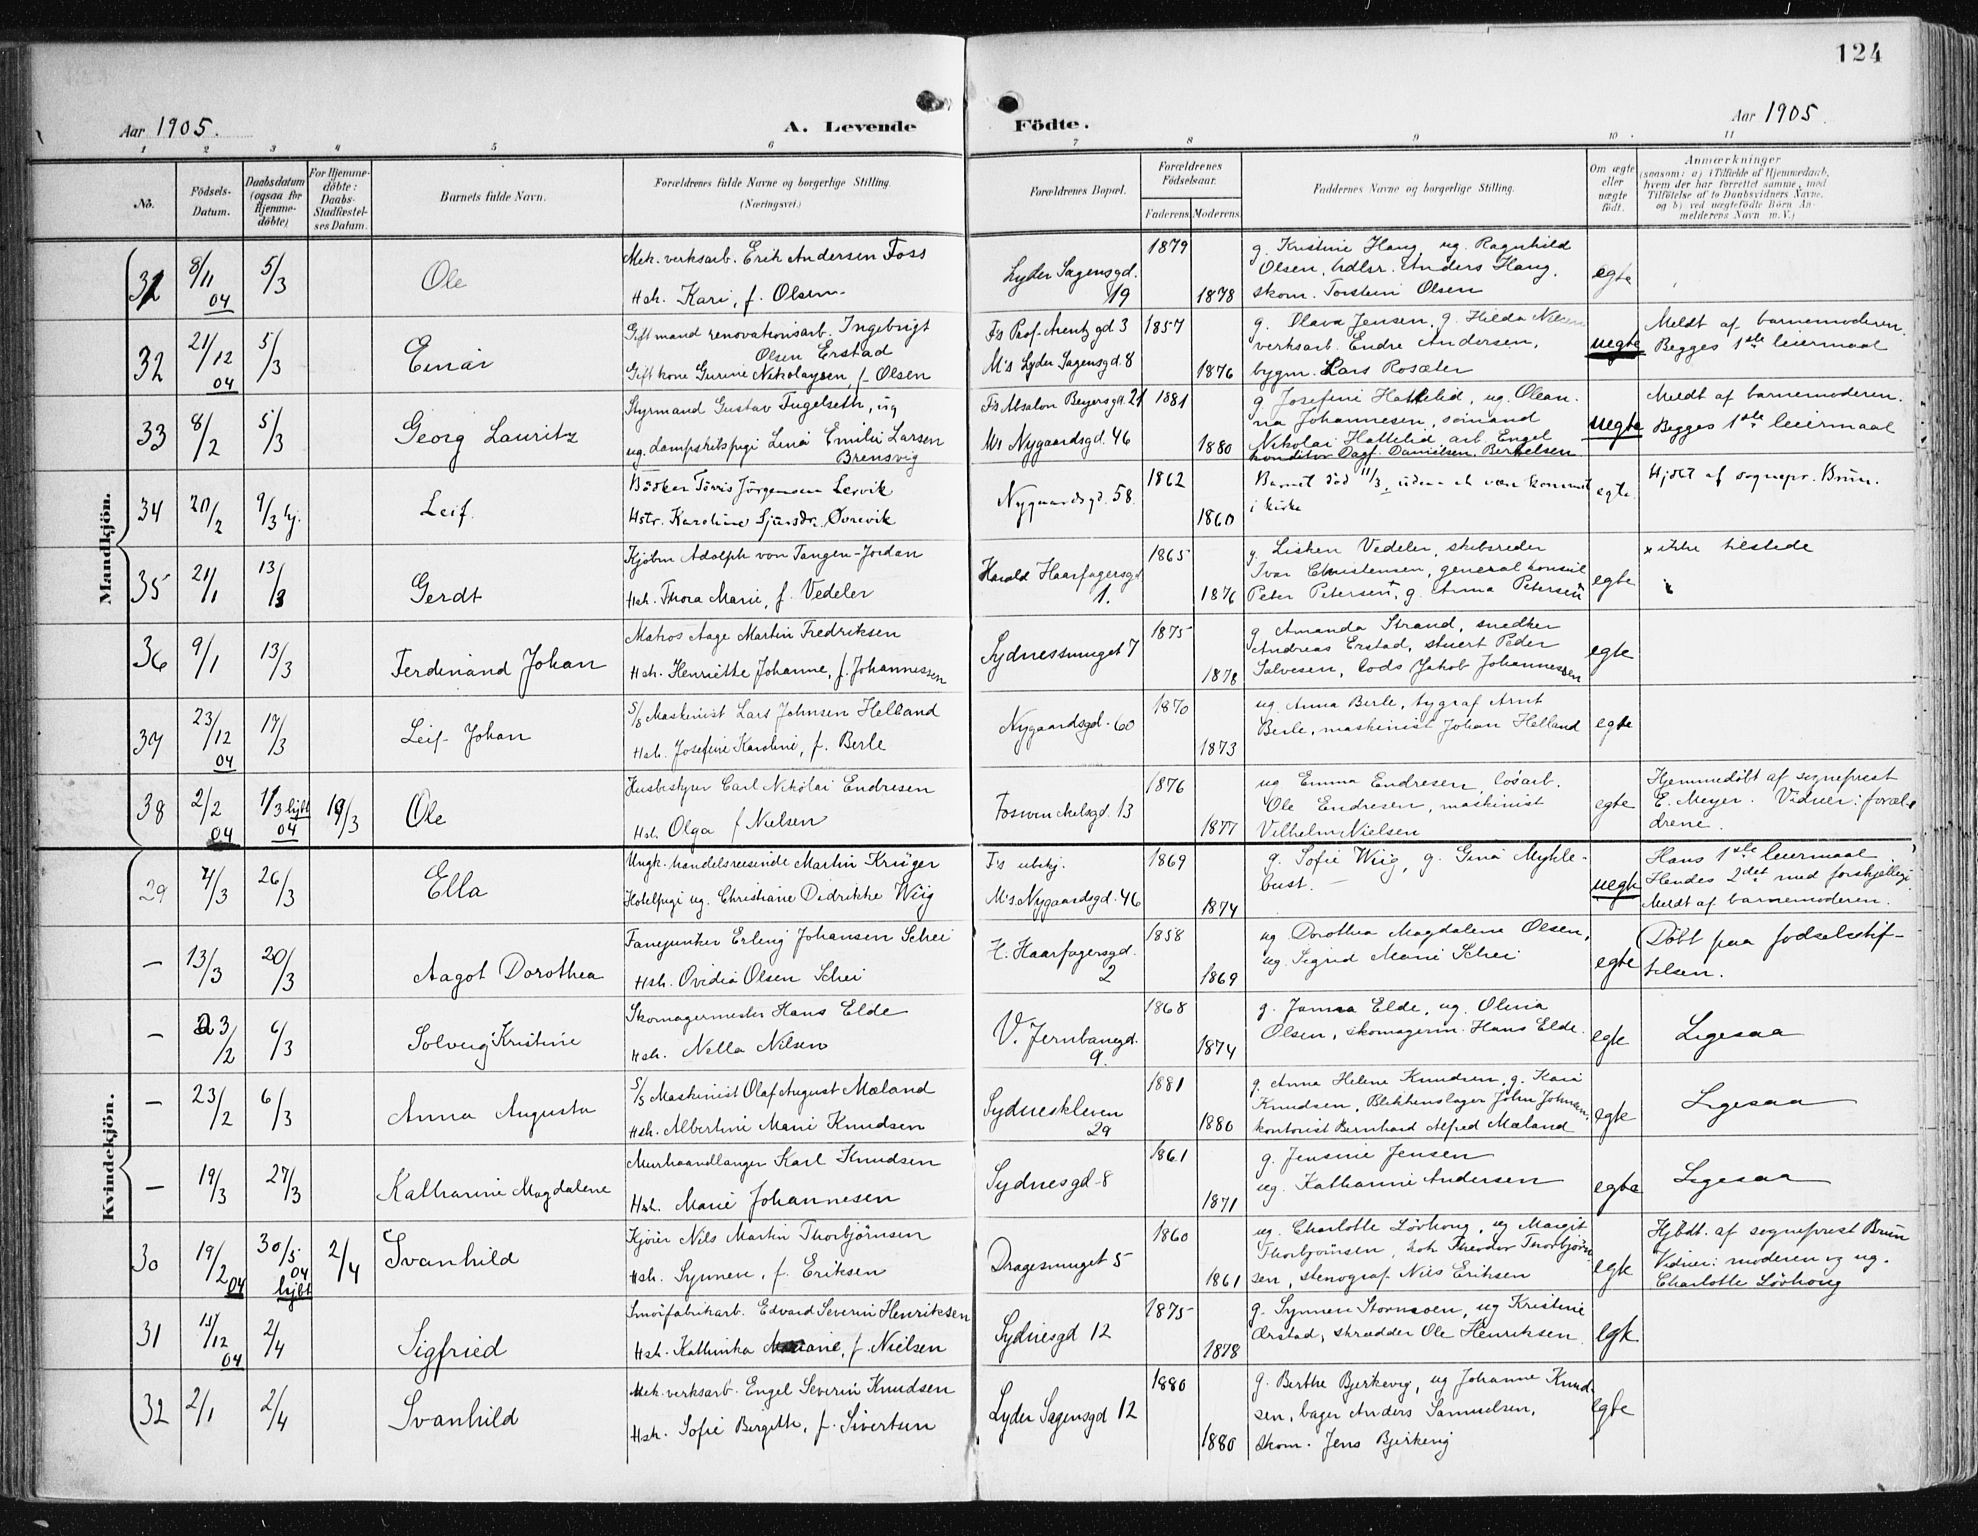 124
Aar 1905.
A. Levende Födte.
Aar 1905
1 2 3 4 5 6 7 8 9 10 11
No.
Födsels-Datum.
Daabsdatum (ogsaa for Hjemme-döbte)
For Hjemme-döbte: Daabs-Stadfæstel-ses Datum.
Barnets fulde Navn.
Forældrenes fulde Navne og borgerlige Stilling. (Næringsvei.)
Forældrenes Bopæl.
Forældrenes Födselsaar.
Faderens. Moderens.
Faddernes Navne og borgerlige Stilling.
Om ægte eller uægte födt.
Anmærkninger
(saasom: a) i Tilfælde af Hjemmedaab,
hvem der har forrettet samme, med
Tilföielse af to Daabsvidners Navne,
og b) ved uægtefödte Börn An-
melderens Navn m. V.)
Mandkjön.
8/11 04 5/3
Ole
Mek. verksarb. Erik Andersen Foss
Hsh. Kari, f. Olsen
Lyder Sagensgd. 19
1879 1878
g. Kristine Haug, ug. Ragnhild
Olsen, Anders Haug,
skom. Torstein Olsen
egte
32 21/12 04 5/3
Einar
Gift mand renovationsarb. Ingebrigt
Olsen Erstad
Gift kone Gurine Nikolaysen, f. Olsen
F's Prof. Arentz gd 3
M's Lyder Sagensgd. 8
1857 1876
g. Olava Jensen, g. Hilda
verksarb. Endre Andersen,
bygm. Lars Rosæter
uegte
Meldt af barnemoderen.
Begges 1ste leiermaal
33 8/2 5/3
Georg Lauritz
Styrmand Gustav Fugelseth, ug
ug. dampskibspige Lina Emilie Larsen
Brensvig
F's Absalon Beyersgd. 21
M's Nygaardsgd. 46
1881 1880
g Josefine Hattelid, ug. Olean-
na Johannesen, sömand
Nikolai Hattelid, arb. Engel
konditor Dagf. Danielsen Berthelsen
uegte
Meldt af barnemoderen.
Begges 1ste leiermaal
34 20/2 9/3 hj.
Leif.
Bödker Tørris Jörgensen Lervik
Hstr. Karoline Sjursdr. Øvrevik
Nygaardsgd. 58
1862 1860
Barnet död 11/3, uden at være kommet
i kirke
egte
Hjdbt af sognepr. Brun.
35 21/1 13/3
Gerdt
Kjöbm Adolph von Tangen-Jordan
Hsh. Thora Marie, f. Vedeler
Harald Haarfagersgd. 1.
1865 1876
g. Lisken Vedeler, skibsreder
Ivar Christensen, generalkonsul
Peter Petersen, g. Anna Petersen
egte
x ikke tilstede
36 9/1 13/3
Ferdinand Johan
Matros Aage Martin Fredriksen
Hsh. Henriette Johanne, f. Johannessen
Sydnessmuget 7
1875 1878
g Amanda Strand, snedker
Andreas Erstad, stuert Peder
Salvesen, Lods Jakob Johannessen
egte
37 23/12 04 17/3
Leif Johan
S/S Maskinist Lars Johnsen Helland
Hsh. Josefine Karoline, f. Berle
Nygaardsgd. 60
1870 1873
ug. Anna Berle, tygraf Arnt
Berle, maskinist Johan Helland
egte
38 2/2 04 1/3 hjbt 04 19/3
Ole
Husbestyrer Carl Nikolai Endresen
Hsh. Olga f Nielsen
Fosswinckelsgd. 13
1876 1877
ug Emma Endresen, lösarb.
Ole Endresen, maskinist
Vilhelm Nielsen
egte
Hjemmedöbt af sogneprest
E. Meyer. Vidner: foræl-
drene.
Kvindekjön.
29 4/3 26/3
Ella
Ungk. handelsreisende Martin Krüger
Hotelpige ug. Christiane Didrikke Wiig
F's ubkj.
M's Nygaardsgd. 46
1869 1874
g. Sofie Wiig, g. Gina Mykle-
bust. -
uegte
Hans 1ste leiermaal
Hendes 2det med forskjellige
Meldt af barnemoderen.
— 13/3 20/3
Aagot Dorothea
Fanejunker Erling Johansen Schei
Hsh. Ovidia Olsen Schei
H. Haarfagersgd. 2
1858 1869
ug Dorothea Magdalene Olsen,
ug. Sigrid Marie Schei
egte
Döbt paa födselsstif-
telsen.
— 23/2 6/3
Solveig Kristine
Skomagermester Hans Elde
Hsh. Nella Nilsen
V. Jernbanegd. 9.
1868 1874
g. Elde, ug. Olina
Olsen, skomagerm. Hans Elde.
egte
Ligesaa
— 23/2 6/3
Anna Augusta
S/S Maskinist Olaf August Mæland
Hsh. Albertine Marie Knudsen
Sydneskleven 29
1881 1880
g. Anna Helene Knudsen, g. Kari
Knudsen, Blikkenslager John Johnsen,
kontorist Bernhard Alfred Mæland
egte
Ligesaa
— 19/3 27/3
Katharine Magdalene
Murhaandlanger Karl Knudsen
Hsh. Marie Johannesen
Sydnesgd 8
1861 1871
g. Jensine Jensen
ug. Katharine Andersen
egte
Ligesaa
30 19/2 04 30/5 04 hjbt 2/4
Svanhild
Kjører Nils Martin Thorbjørnsen
Hsh. Synneve, f. Eriksen
Dragesmuget 5
1860 1861
ug. Charlotte Lövhoug, ug Margit
Thorbjørnsen, Theodor Thorbjørn
sen, stenograf Nils Eriksen
egte
Hjbdt. af sogneprest Brun
Vidner: moderen og ug.
Charlotte Lövhoug
31 11/12 04 2/4
Sigfried
Smörfabrikarb. Edvard Severin Henriksen
Hsh. Kathinka Marie, f. Nielsen
Sydnesgd 12
1875 1878
g. Synneve, ug Kristine
Ørstad, skrædder Ole Henriksen
egte
32 2/1 2/4
Svanhild
Mek. verksarb. Engel Severin Knudsen
Hsh. Sofie Birgitte, f. Sivertsen
Lyder Sagensgd 12
1880 1880
g. Berthe Bjerkevig, ug Johanne Knud-
sen, bager Anders Samuelsen,
skom. Jens Bjerkevig
egte